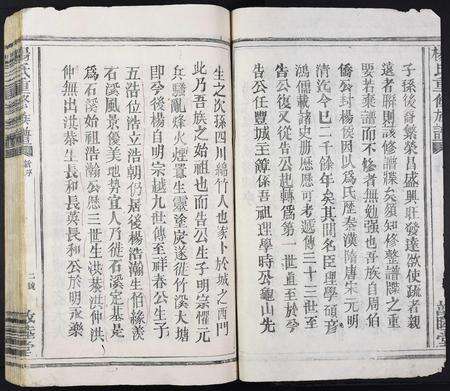 楊氏重修族譜
子孫後裔繁榮昌盛興旺發達欲使疏者親
遠者聯則該修譜牒矣須知修整譜牒之重
要若秉譜而不修者無勉强也吾族自周伯
僑公封楊侯因以爲氏歷秦漢隋唐宋元明
清迄今已二千餘年矣其間名臣理學碩彥
鴻儒載諸史册歷歷可考遞傳三十三世至
告公復又從告公起轉爲第一世直至於孚
告公任豐城王簿係吾祖理學時公龜山先
生之次孫四川綿竹人也家卜於城之西門
此乃吾族之始祖也而告公生子明宗懼元
兵騷亂烽火煙 生靈塗炭遂徙竹溪大塘
即孕後楊自明宗越九世傳至祥春公生子
五浩位浩立浩朝仍居後楊浩瀚生怕緣羨
石溪風景優美地勢宜人乃徙石溪定基是
爲石溪始祖浩瀚公歷三世生洪葵洪仲洪
仲無出洪葵生長和長英長和公於明永樂
楊氏重修族譜 新序 二 敦睦堂